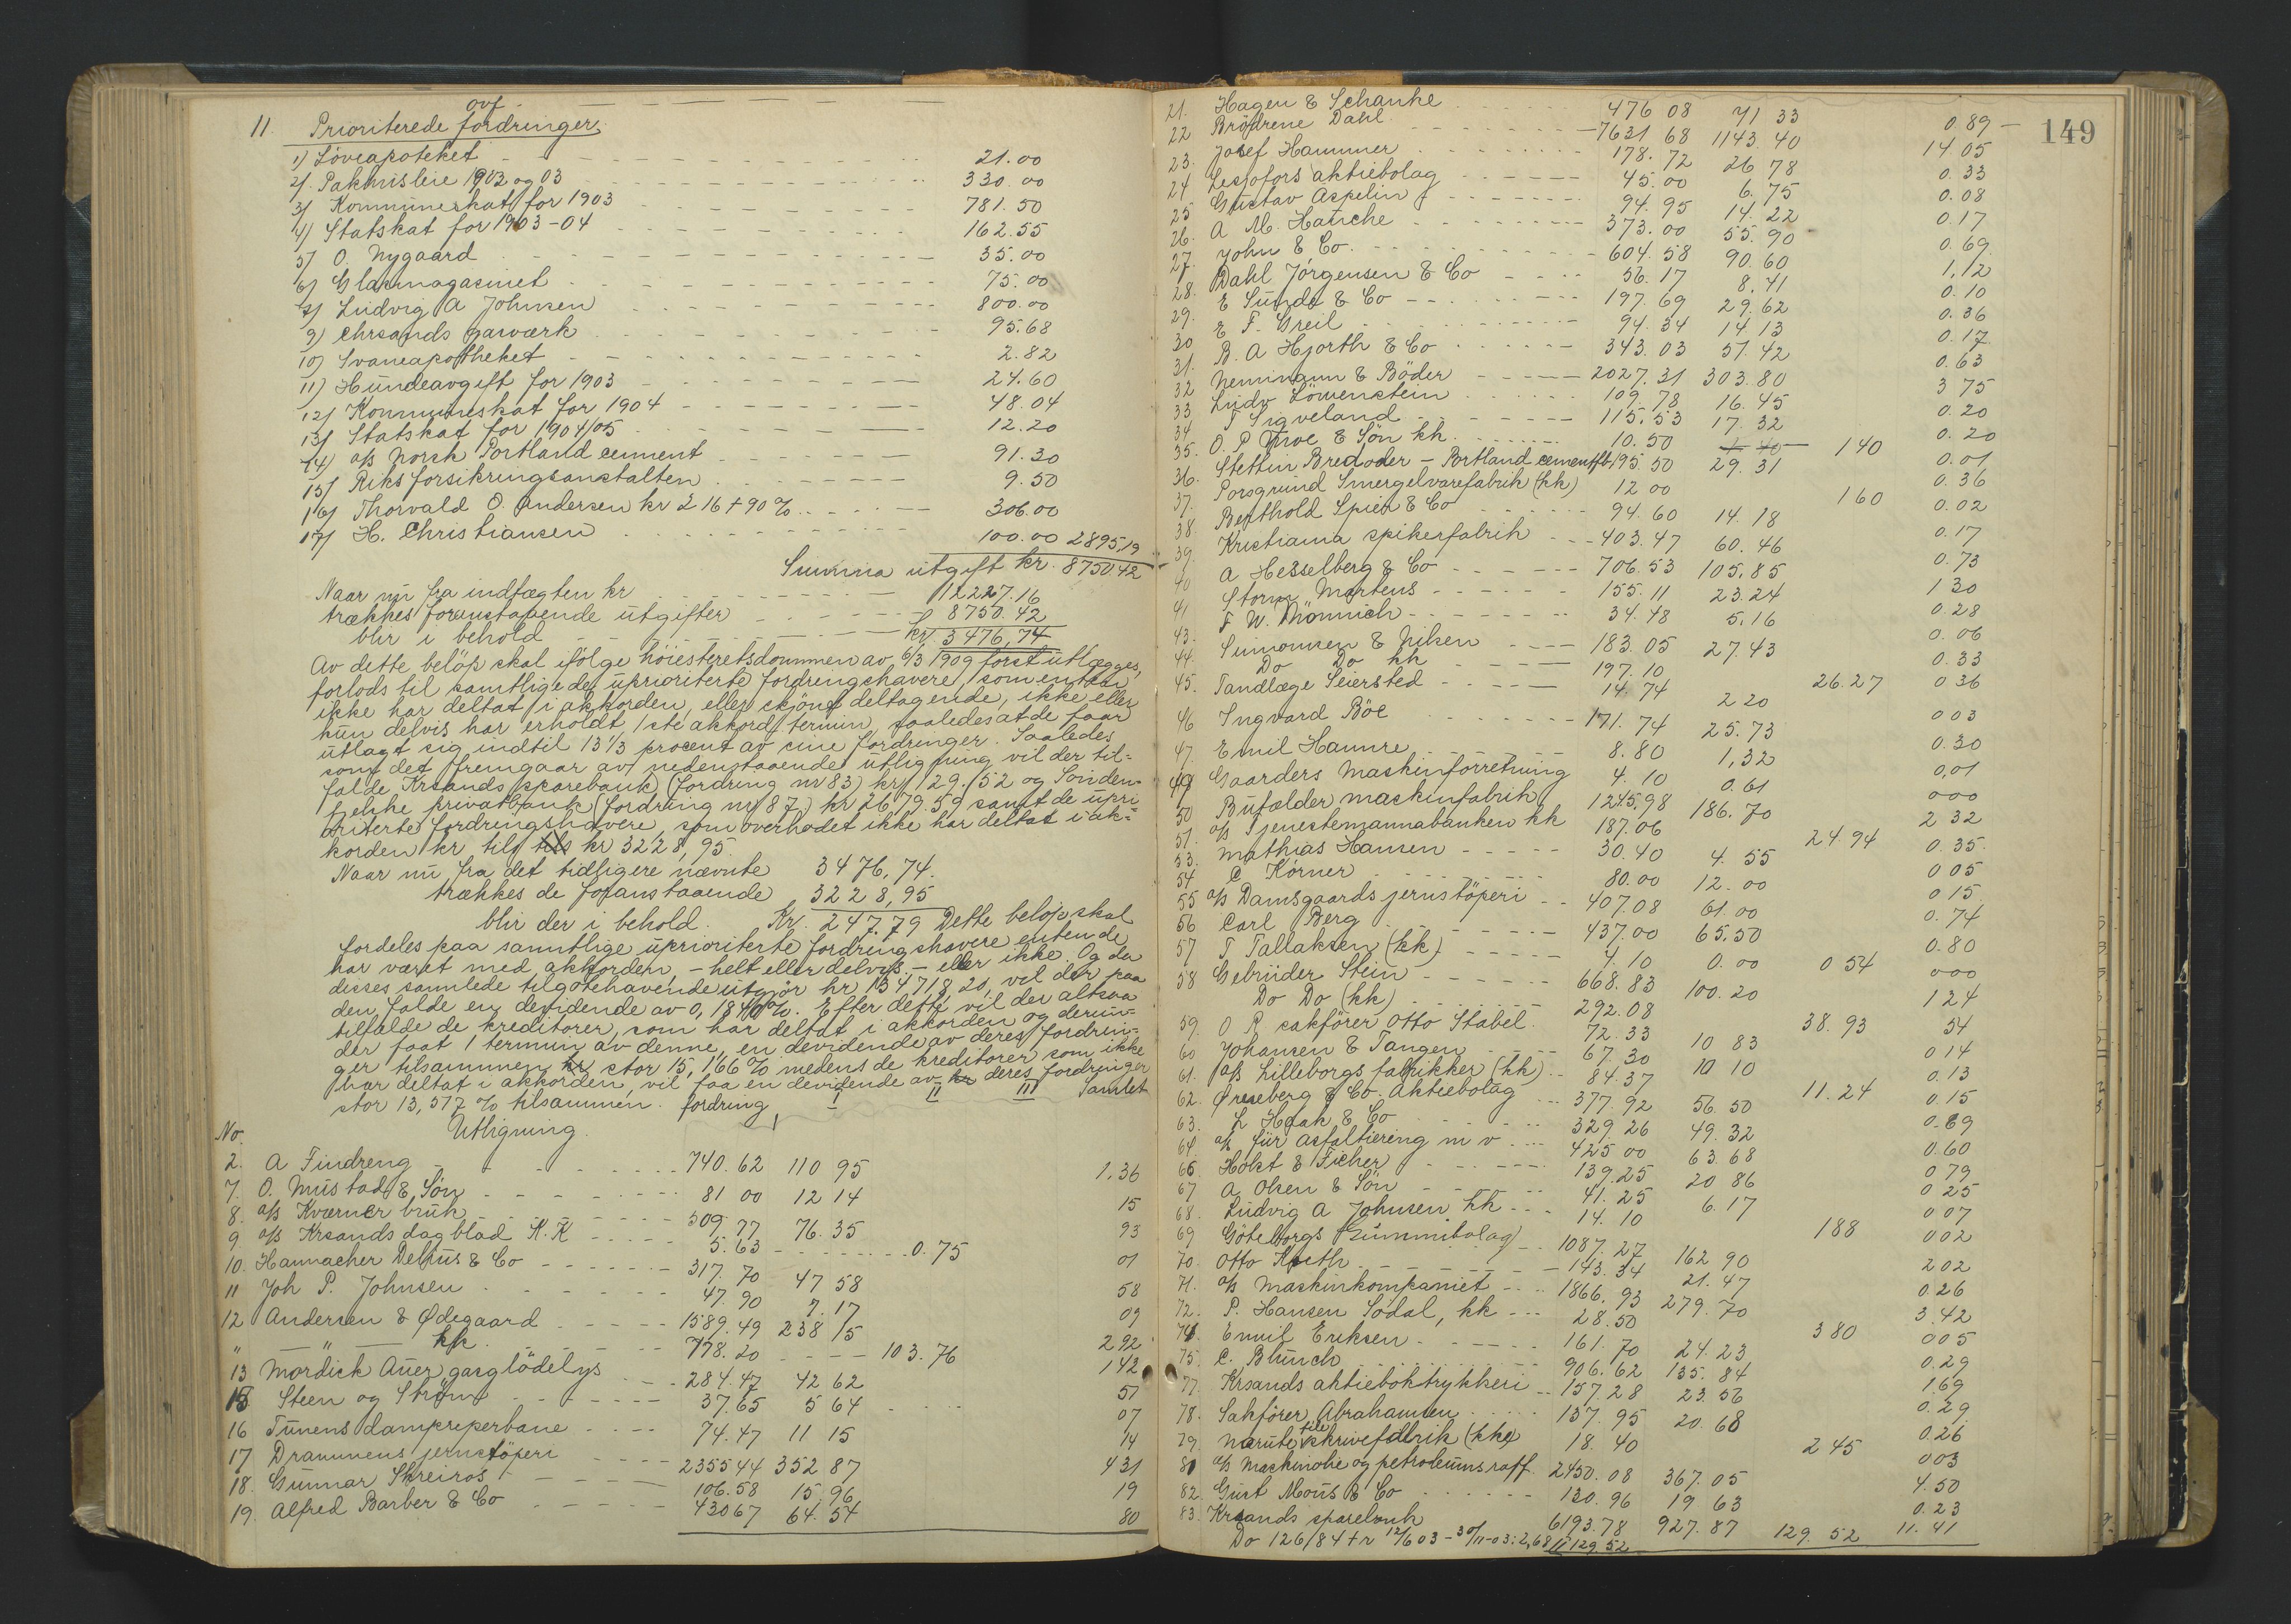 ovf
11. Prioriterede fordringer.
1) Löveapoteket 21.00
2) Pakhusleie 1902 og 03 330.00
3) Kommuneskat for 1903 781.50
4) Statskat for 1903-04 162.55
5) O. Nygaard 35.00
6) Glasmagasinet 75.00
7) Ludvig A Johnsen 800.00
9) Chrsands gasværk 95.68
10) Svaneapotheket 2.82
11) Hundeavgift for 1903 24.60
12) Kommuneskat for 1904 48.04
13) Statskat for 1904/05 12.20
14) a/s Norsk Portland cement 91.30
15) Riksforsikringsanstalten 9.50
16) Thorvald O. Andersen kr 216 + 90 % 306.00
17) H. Christiansen 100.00 2895.19
Summa utgift kr. 8750.42
Naar nu fra indtægten kr 12227.16
trækkes forenstaaende utgifter 8750.42
blir i behold kr. 3476,74
Av dette belöp skal ifölge höiesteretsdommen av 6/3 1909 först utlægges,
forlods til samtlige de uprioriterte fordringshavere, som enten
ikke har deltat i akkorden, eller skjönt deltagende, ikke eller
kun delvis har erholdt 1ste akkordtermin, saaledes at de faar
utlagt sig indtil 13 1/3 procent av sine fordringer. Saaledes
som det fremgaar av nedenstaaende utligning vil der til-
falde Krsands sparebank (fordring nr 83) kr 129.52 og Sönden-
fjelske privatbank (fordring nr 87) kr 2679.59 samt de upri
oriterte fordringshavere, som overhodet ikke har deltat i ak-
korden kr tils kr 3228,95.
Naar nu fra det tidligere nævnte 3476,74.
trækkes de foranstaaende 3228,95
blir der i behold. Kr. 247.79 Dette belöp skal
fordeles paa samtlige uprioriterte fordringshavere enten de
har været med akkorden, – helt eller delvis – eller ikke. Og da
disses samlede tilgotehavende utgjör kr 134718,20, vil der paa
den falde en devidende av 0,1840%. Efter dette vil der altsaa
tilfalde de kreditorer, som har deltat i akkorden og derun-
der faat 1 termin av denne, en devidende av deres fordrin-
ger tilsammen stor 15,166 % medens de kreditorer som ikke
har deltat i akkorden, vil faa en devidende av deres fordringer
stor 13,517 % tilsammen. fordring I II III Samlet
No. Utligning.
2. A Tindreng 740.62 110 95 1,36
7. O. Mustad & Sön 81 00 12 14 15
8. a/s Kværner bruk 509.77 76.35 93
9 a/s Krsands dagblad K.K 5.63 0.75 01
10. Hannacher Delius & Co 317.70 47 58 58
11 Joh P. Johnsen 47.90 7.17 09
12 Andersen & Ødegaard 1589.49 238 15 2 92
" " kk 778.20 103.76 1 42
13 Mordick Auer gasglödelys 284.47 42 62 51
15 Steen og Ström 37.65 5 64 07
16 Tunens dampreperbane 74.47 11 15 14
17 Drammens jernstöperi 2355 44 352 87 4 31
18. Gunnar Skreiros 106.58 15.96 19
19. Alfred Barber & Co 430 67 64.54 80
149
21. Hagen & Schanke 476 08 71 33 0.89
22 Brödrene Dahl 7631 68 1143.40 14 05
23. Josef Hammer 178.72 26 78 0.33
24 Lesjofors aktiebolag 45.00 6.75 0.08
25 Gustav Aspelin 94.95 14.22 0.17
26. A M. Hansche 373.00 55.90 0.69
27. John & Co. 604.58 90.60 1,12
28. Dahl Jörgensen & Co 56.17 8.41 0.10
29. E Sunde & Co 197.69 29.62 0.36
30 E F. Greil 94.34 14 13 0.17
31. B. A Hjorth & Co 343.03 51.42 0.63
32 Nemingum & Böder 2027.31 303.80 3 75
33 Ludv Löwenstein 109.78 16.45 0.20
34 T Sigveland 115.53 17.32 0.20
35. O. P. Moe & Sön kk. 10.50 1 40 0.01
36. Stettin Bredower - Portland cementfb. 195.50 29.31 0.36
37. Porsgrund Smergelvarefabrik (kk) 12 00 1 60 0.02
38. Berthold Spier & Co 94.60 14.18 0.17
39. Kristiania spikerfabrik 403.47 60.46 0.73
40 A Hesselberg & Co 706.53 105.85 1 30
41 Storm Martens 155.11 23.24 0.28
F W. Mönnich 34.48 5.16 0.06
43. Simonsen & Nilsen 183.05 27.43 0.33
44. Do Do kk 197.10 26.27 0 36
45. Tandlæge Seiersted 14.74 2 20 0 03
46 Ingvard Böe 171.74 25.73 0.30
47. Emil Hannre 8.80 1,32 0,01
49 Gaarders Maskinforretning 4.10 0.61 0 00
50 Bufælder maskinfabrik 1245,98 186.70 2 32
51. a/s Tjenestemannabanken kk 187.06 24.94 0.35.
53. Mathias Hansen 30.40 4.55 0 05
54 C Körner 80.00 12.00 0 15
55 a/s Damsgaards jernstöperi 407.08 61.00 0.74
56 Carl Berg 437.00 65.50 0.80
57 T. Tallaksen (kk) 4.10 0.00 0 54 0 00
58 Gebrüder Stein 668.83 100.20 1 24
Do Do (kk) 292.08 38.93 54
59. O R sakförer Otto Stabel 72.33 10 83 0 14
60 Johansen & Tangen 67.30 10 10 0.13
61. a/s Lilleborgs fabrikker (kk) 84.37 11.24 0.15
62. Øreseberg & Co. Aktiebolag 377.92 56.50 0.69
63. L Haak & Co 329 26 49.32 0.60
64. a/s für asfaltiering m v 425 00 63.68 0 79
66 Holst & Ficher 139.25 20 86 0 25
67 A Olsen & Sön 41.25 6.17 0 07
68. Ludvig A Johnsen kk 14.10 1 88 0 02
69 Göteborgs Gummibolag 1087.27 162 90 2 02
70. Otto Kjeth 143.34 21.47 0.26
71. a/s Maskinkompaniet 1866.93 279.70 3.42
72. P. Hansen Sodal, kk 28.50 3 80 0 05
74. Emil Eriksen 161.70 24.23 0.29
75. C. Blunck 906.62 135.84 1,69
77. Krsands aktieboktrykkeri 157.28 23.56 0.29
78. Sakförer Abrahamsen 137.95 20.68 0.26
79. 18.40 2 45 0 03
81 a/s Maskinolie og petroleumsraff. 2450.08 367.05 4.50
82. Gust Mous & Co 130.96 19 63 0.23
83. Krsands sparebank 6193.78 927.87 129.52 11.41
Do 126/84 + r 12/6 03 - 30/11-03: 2,68 129 52